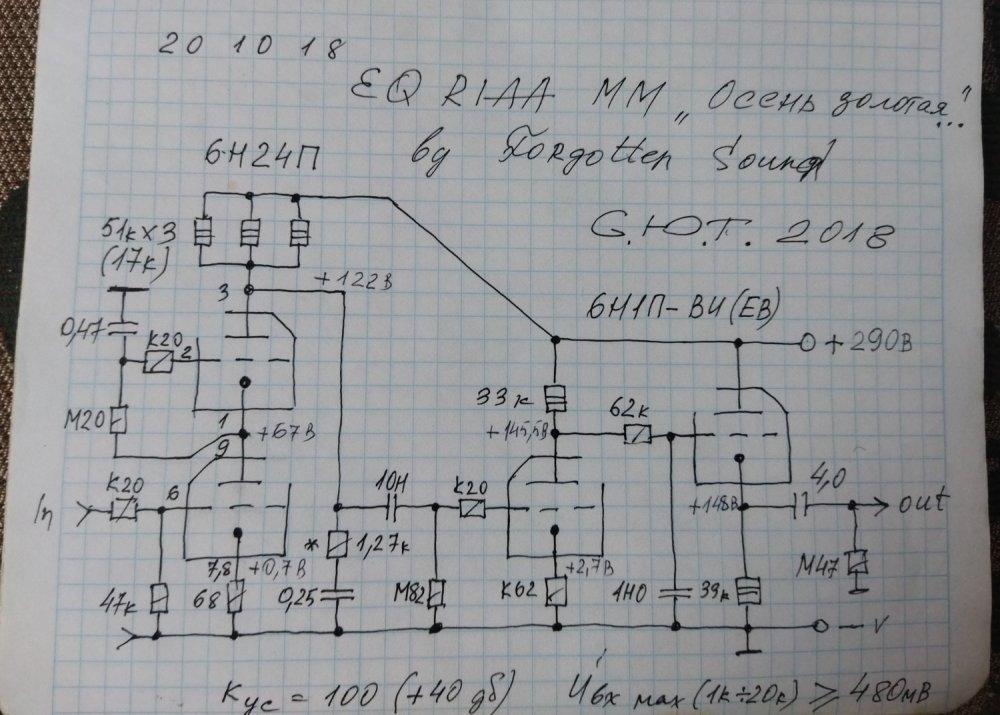 20 10 18
EQ RIAA MM „Осень золотая..."
by Forgotten Sound
6Н24П
С.Ю.Т. 2018
51к×3
(17к)
+122В
3
6Н1П-ВИ(ЕВ)
0,47
К20
2
+290В
33к
М20
1
+67В
62к
+145,5В
9
К20
6
10Н
К20
4,0
In
+148В
out
* 1,27к
7,8
+0,7В
+2,7В
М47
47к
68
0,25
М82
К62
1Н0
39к
– V
Кус = 100 (+40 дб)
Uвх max (1к÷20к) ⩾ 480мВ